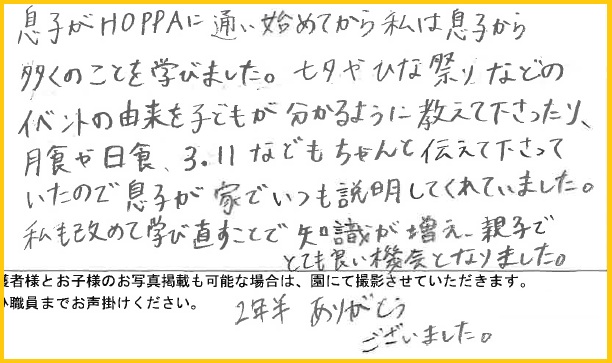 息子がHOPPAに通い始めてから私は息子から
多くのことを学びました。七夕やひな祭りなどの
イベントの由来を子どもが分かるように教えて下さったり、
月食や日食、3.11などもちゃんと伝えて下さって
いたので息子が家でいつも説明してくれていました。
私も改めて学び直すことで知識が増え、親子で
とても良い機会となりました。
護者様とお子様のお写真掲載も可能な場合は、園にて撮影させていただきます。
い職員までお声掛けください。
2年半 ありがとう
ございました。